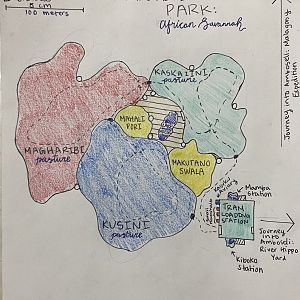 5 cm
100 meters
PARK:
African Savannah
KASKAZINI
pasture
MAHALI
PORI
MAGHARIBI
pasture
MAKUTANO
SWALA
KUSINI
pasture
Mamba
Station
TRAM
LOADING
STATION
Kiboko
Station
Journey
into
Amboseli:
River Hippo
Yard
Journey into Amboseli: Malagony
Expedition